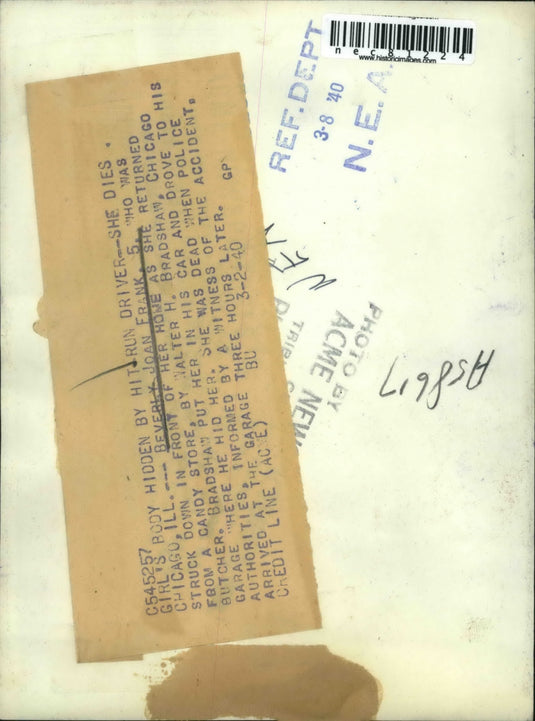 nec81224
www.historicimages.com
REF. DEPT
3-8 '40
N. E. A.
C545257
GIRL'S BODY HIDDEN BY HIT-RUN DRIVER--SHE DIES.
CHICAGO, ILL.--- BEVERLY JOAN FRANK, 5, WHO WAS
STRUCK DOWN IN FRONT OF HER HOME AS SHE RETURNED
FROM A CANDY STORE, BY WALTER H. BRADSHAW, CHICAGO
BUTCHER. BRADSHAW PUT HER IN HIS CAR AND DROVE TO HIS
GARAGE WHERE HE HID HER. SHE WAS DEAD WHEN POLICE
AUTHORITIES, INFORMED BY A WITNESS OF THE ACCIDENT,
ARRIVED AT THE GARAGE THREE HOURS LATER.
CREDIT LINE (ACME) BU 3-2-40 GP
PHOTO BY
ACME NEW
TRIB
A58617